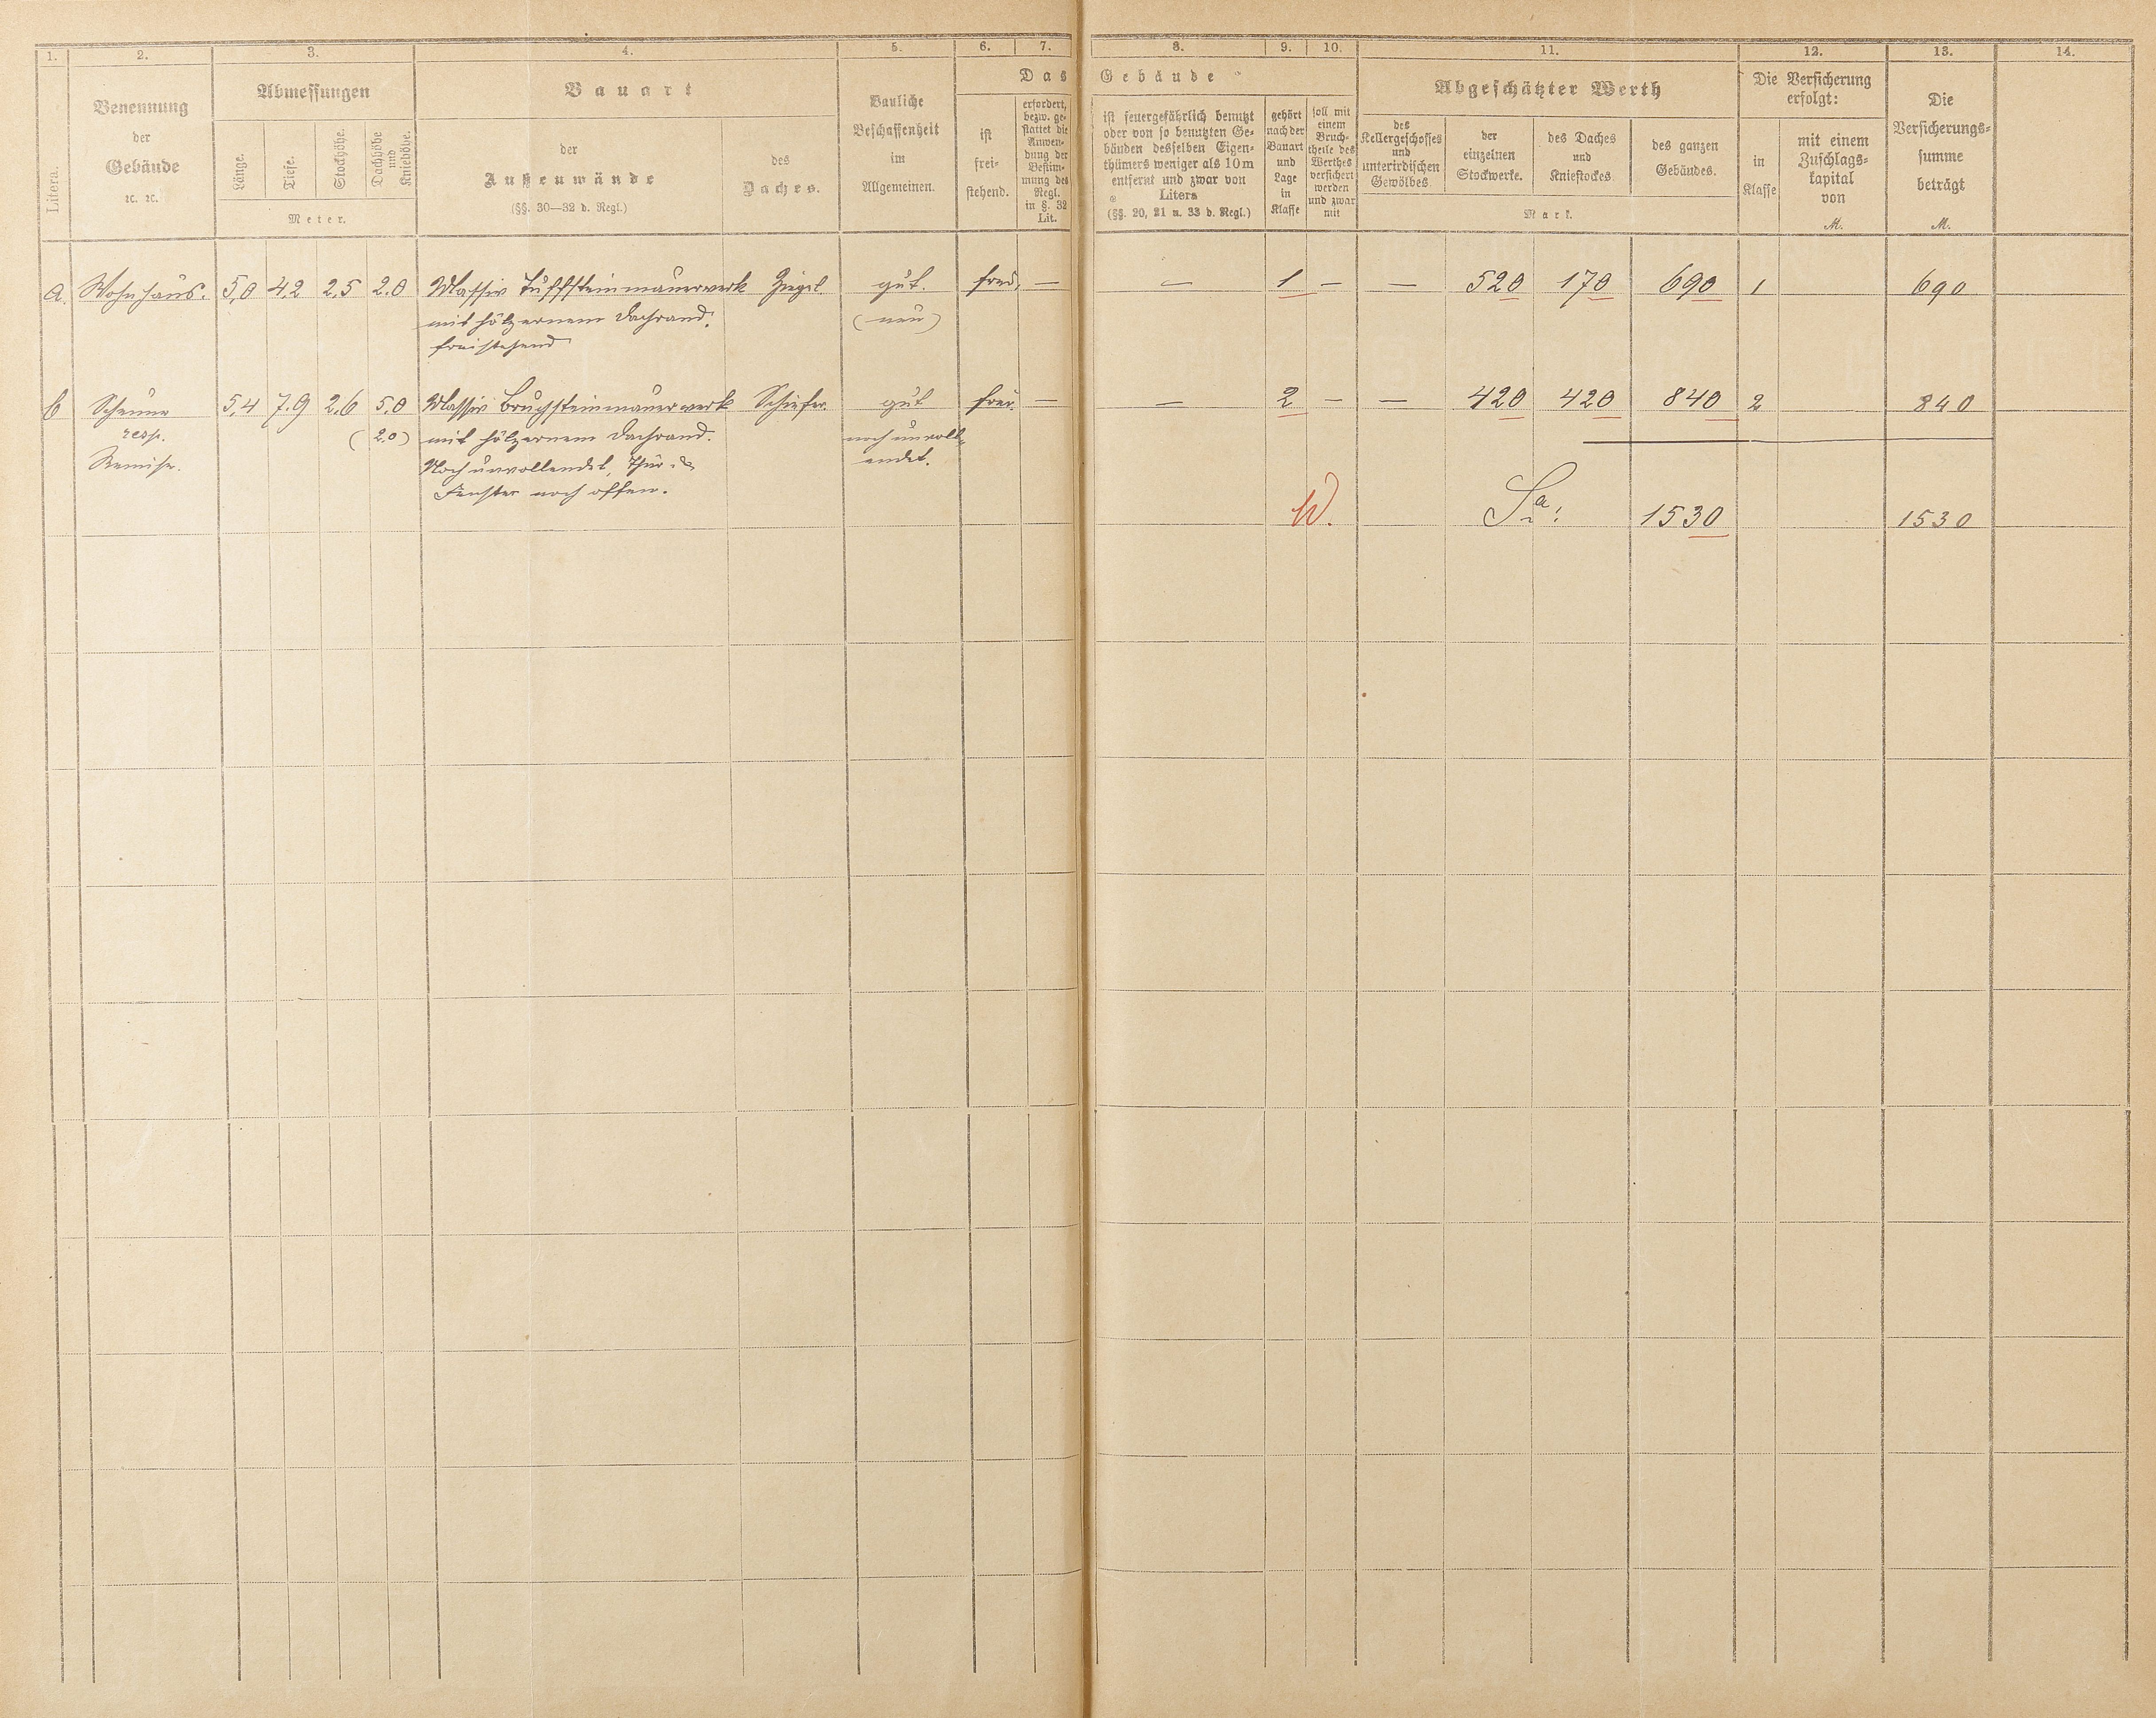 1. 2. 3. 4. 5. 6. 7. 8. 9. 10. 11. 12. 13. 14.
Litera.
Benennung
der
Gebäude
ꝛc. ꝛc.
Abmessungen
Länge.
Tiefe.
Stockhöhe.
Dachhöhe
und
Kniehöhe.
Meter.
Bauart
der
Außenwände
(§§. 30—32 d. Regl.)
des
Daches.
Bauliche
Beschaffenheit
im
Allgemeinen.
Das Gebäude
ist
frei-
stehend.
erfordert,
bezw. ge-
stattet die
Anwen-
dung der
Bestim-
mung des
Regl.
in §. 32
Lit.
ist feuergefährlich benutzt
oder von so benutzten Ge-
bäuden desselben Eigen-
thümers weniger als 10 m
entfernt und zwar von
Litera
(§§. 20, 21 u. 33 d. Regl.)
gehört
nach der
Bauart
und
Lage
in
Klasse
soll mit
einem
Bruch-
theile des
Werthes
versichert
werden
und zwar
mit
Abgeschätzter Werth
des
Kellergeschosses
und
unterirdischen
Gewölbes
der
einzelnen
Stockwerke.
des Daches
und
Kniestockes
des ganzen
Gebäudes.
Mark.
Die Versicherung
erfolgt:
in
Klasse
mit einem
Zuschlags-
kapital
von
M.
Die
Versicherungs-
summe
beträgt
M.
a. Wohnhaus. 5,0 4,2 2,5 2,0 Massiv Tuffsteinmauerwerk Ziegel. gut. frei. — — 1 — — 520 170 690 1 690
mit hölzernem Dachrand. (neu)
freistehend
b Scheune 5,4 7,9 2,6 5,0 Massiv Bruchsteinmauerwerk Schiefer. gut frei. — — 2 — — 420 420 840 2 840
resp. (2,0) mit hölzernem Dachrand. noch unvoll-
Remise. Noch unvollendet, Thür & endet.
Fenster noch offen.
W. Sa: 1530 1530